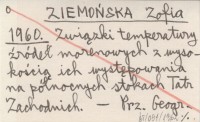 ZIEMOŃSKA Zofia
1960. Związki temperatury
źródeł morenowych z wyso-
kością ich występowania
na północnych stokach Tatr
Zachodnich. — Prz. Geogr.